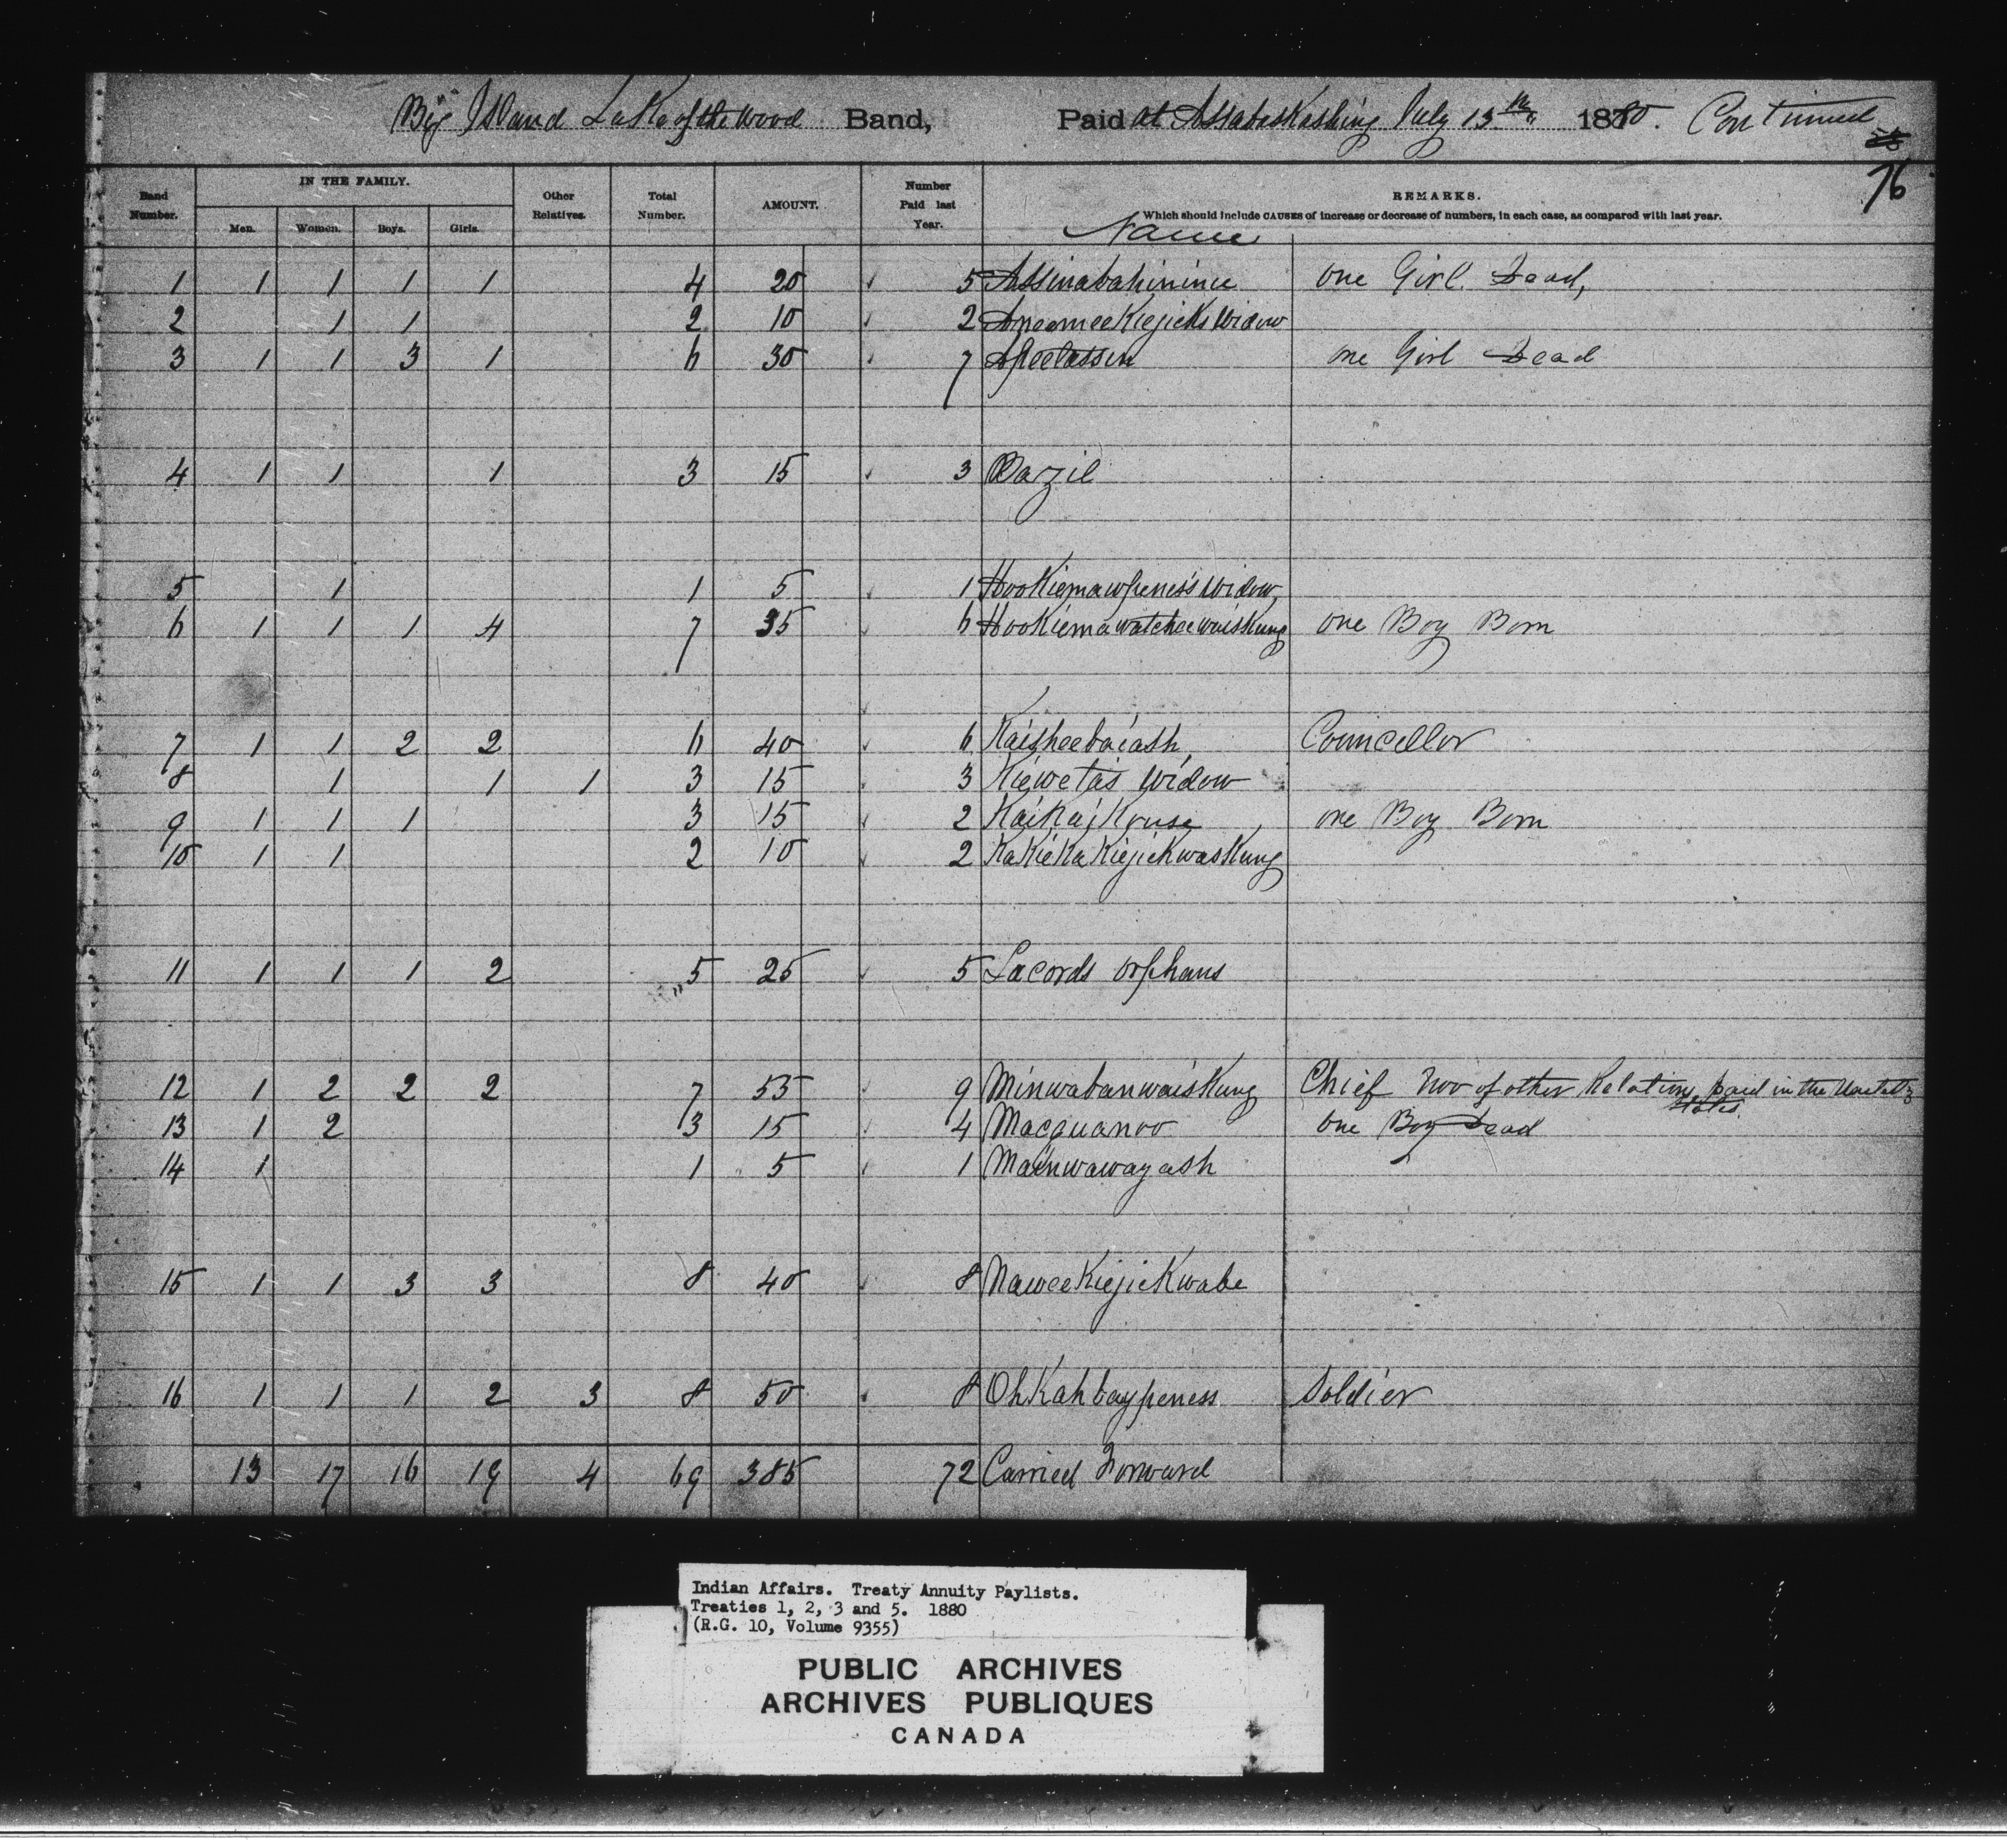 Big Island Lake of the Wood Band, Paid at Assabaskashing July 13th 1880. Continued
76
Band Number. IN THE FAMILY. Men. Women. Boys. Girls. Other Relatives. Total Number. AMOUNT. Number Paid last Year. REMARKS.
Which should include CAUSES of increase or decrease of numbers, in each case, as compared with last year.
Name
1 1 1 1 1 4 20 5 Assinabahinince one Girl Dead,
2 1 1 2 10 2 AneemeeKiejicks Widow
3 1 1 3 1 6 30 7 Apeetassin one Girl Dead
4 1 1 1 3 15 3 Bazil
5 1 1 5 1 HooKiemawpeness Widow,
6 1 1 1 4 7 35 6 HooKiemawatcheewaisKung one Boy Born
7 1 1 2 2 6 40 6 Kaisheebaiash, Councellor
8 1 1 1 3 15 3 Kiewetas Widow
9 1 1 1 3 15 2 KaiKaiKouse one Boy Born
10 1 1 2 10 2 KaKieKaKiejickwasKung
11 1 1 1 2 5 25 5 Lacords Orphans
12 1 2 2 2 7 55 9 MinwabanwaisKung Chief Two of other Relations paid in the United States
13 1 2 3 15 4 Macquanoo one Boy Dead
14 1 1 5 1 Mainwawayash
15 1 1 3 3 8 40 8 NaweeKiejicKwabe
16 1 1 1 2 3 8 50 8 OhKahbaypeness Soldier
13 17 16 19 4 69 385 72 Carried Forward
Indian Affairs. Treaty Annuity Paylists.
Treaties 1, 2, 3 and 5. 1880
(R.G. 10, Volume 9355)
PUBLIC ARCHIVES
ARCHIVES PUBLIQUES
CANADA